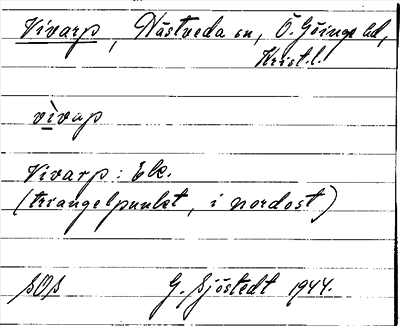 Vivarp, Nästveda sn, Ö. Göinge hd,
Krist. l.
vìvap
Vivarp: Ek.
(triangelpunkt, i nordost)
SOS G. Sjöstedt 1944.